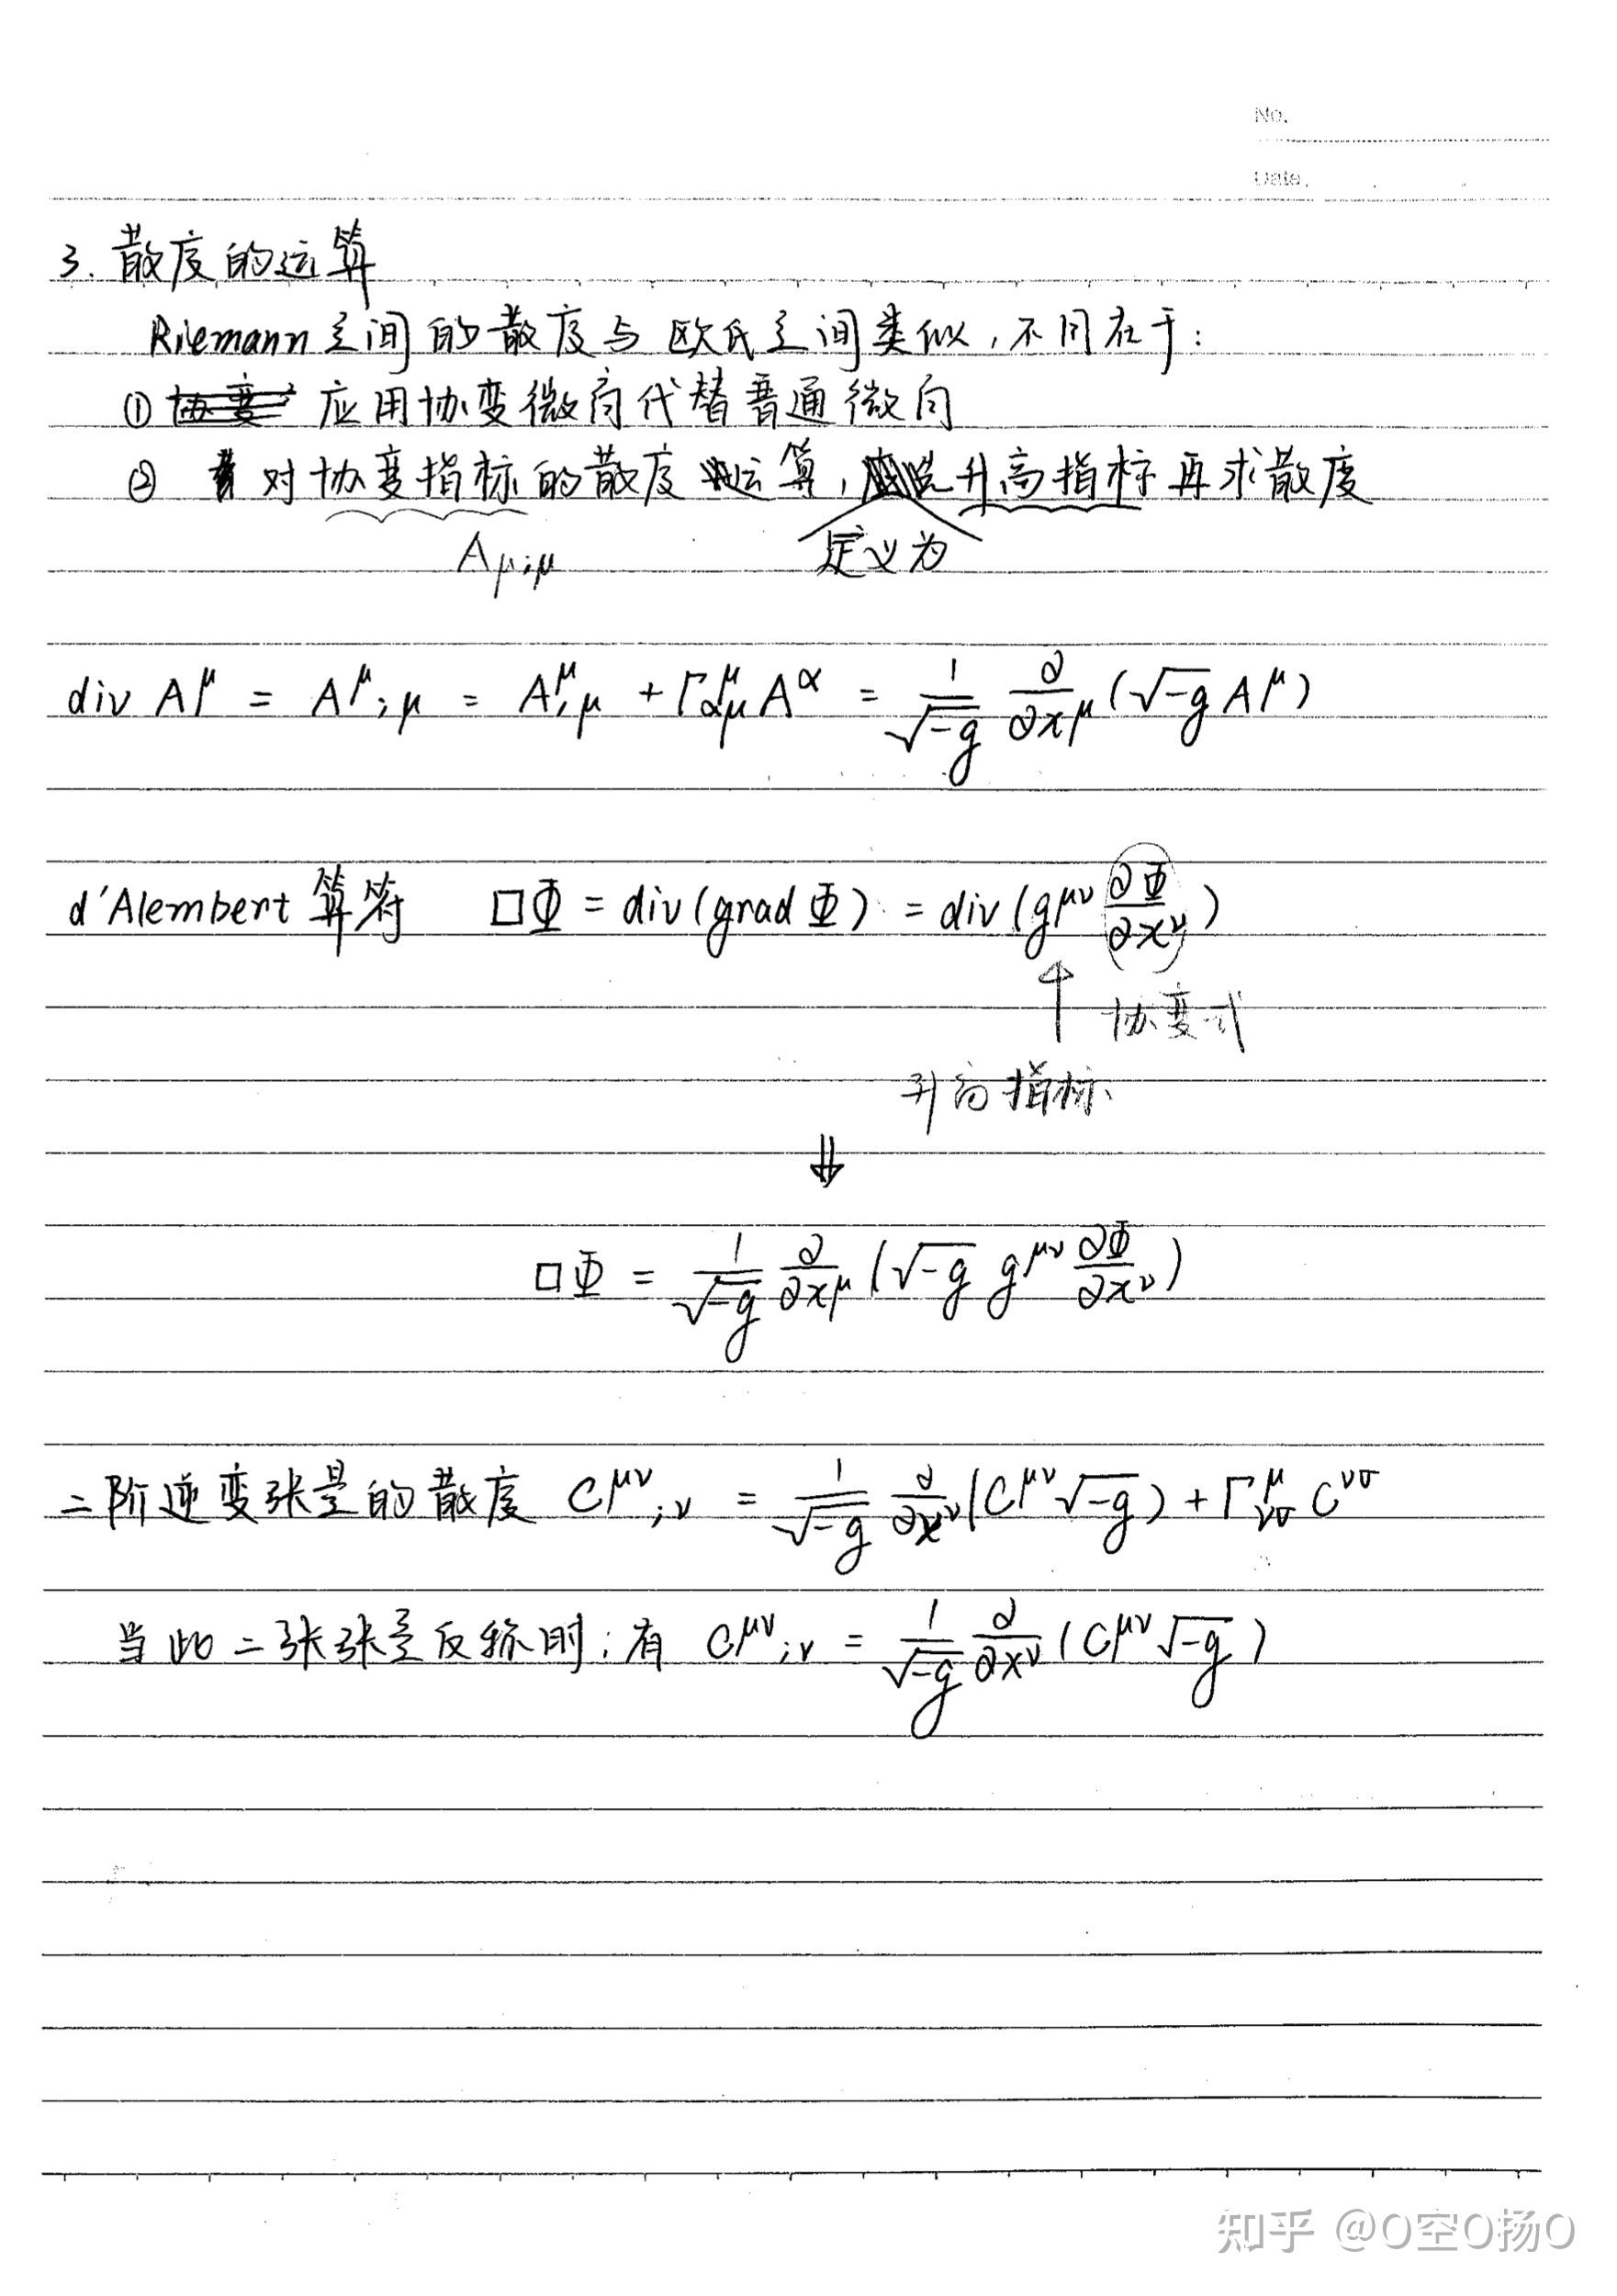 No.
Date.
3. 散度的运算
Riemann空间的散度与欧氏空间类似,不同在于:
① 应用协变微商代替普通微商
② 对协变指标的散度运算,定义为升高指标再求散度
Aμ;μ
div A^μ = A^μ_{;μ} = A^μ_{,μ} + Γ^μ_{αμ} A^α = \frac{1}{\sqrt{-g}} \frac{∂}{∂x^μ} (\sqrt{-g} A^μ)
d'Alembert 算符 □Φ = div(grad Φ) = div(g^{μν} \frac{∂Φ}{∂x^ν})
↑ 协变式
升高指标
⇓
□Φ = \frac{1}{\sqrt{-g}} \frac{∂}{∂x^μ} (\sqrt{-g} g^{μν} \frac{∂Φ}{∂x^ν})
二阶逆变张量的散度 C^{μν}_{;ν} = \frac{1}{\sqrt{-g}} \frac{∂}{∂x^ν} (C^{μν} \sqrt{-g}) + Γ^μ_{νσ} C^{νσ}
当此二张张量反称时:有 C^{μν}_{;ν} = \frac{1}{\sqrt{-g}} \frac{∂}{∂x^ν} (C^{μν} \sqrt{-g})
知乎 @O空O扬O